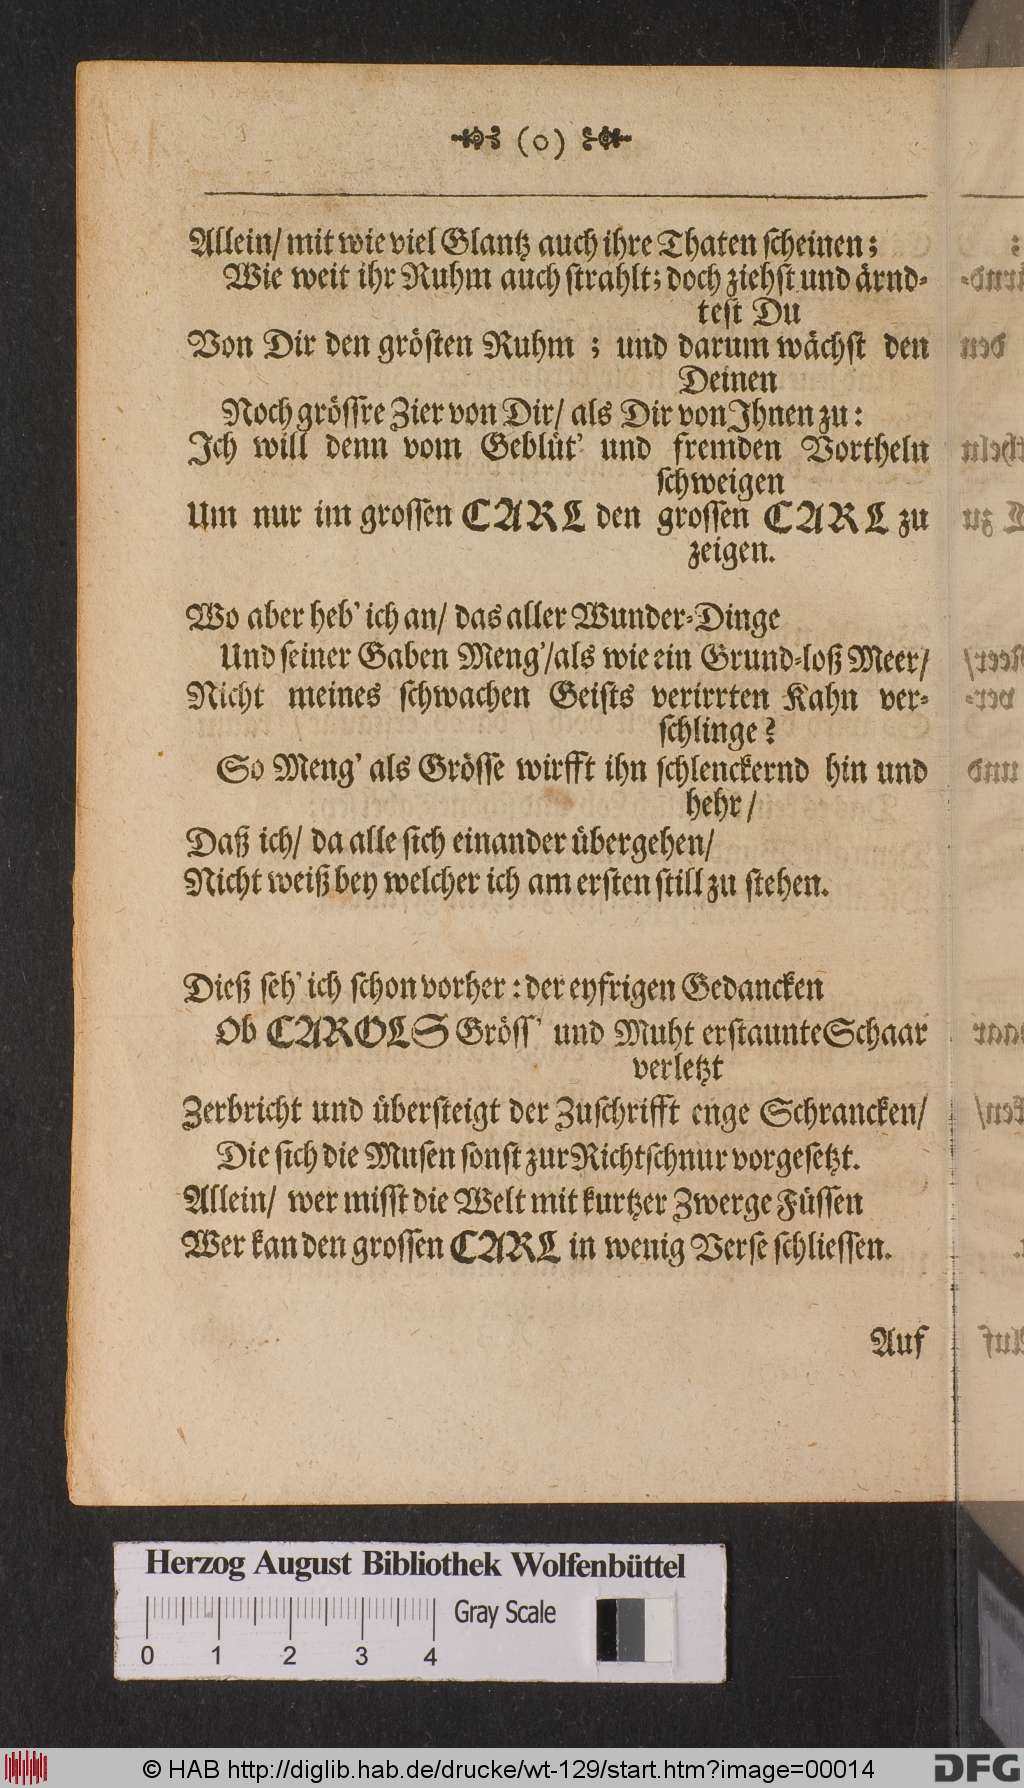 (o)
Allein/ mit wie viel Glantz auch ihre Thaten scheinen;
Wie weit ihr Ruhm auch strahlt; doch ziehst und ärnd-
test Du
Von Dir den grösten Ruhm ; und darum wächst den
Deinen
Noch grössre Zier von Dir/ als Dir von Ihnen zu:
Ich will denn vom Geblüt' und fremden Vortheln
schweigen
Um nur im grossen CARL den grossen CARL zu
zeigen.
Wo aber heb' ich an/ das aller Wunder-Dinge
Und seiner Gaben Meng'/als wie ein Grund-loß Meer/
Nicht meines schwachen Geists verirrten Kahn ver-
schlinge?
So Meng' als Grösse wirfft ihn schlenckernd hin und
hehr/
Daß ich/ da alle sich einander übergehen/
Nicht weiß bey welcher ich am ersten still zu stehen.
Dieß seh' ich schon vorher: der eyfrigen Gedancken
Ob CAROLS Gröss' und Muht erstaunte Schaar
verletzt
Zerbricht und übersteigt der Zuschrifft enge Schrancken/
Die sich die Musen sonst zur Richtschnur vorgesetzt.
Allein/ wer misst die Welt mit kurtzer Zwerge Füssen
Wer kan den grossen CARL in wenig Verse schliessen.
Auf
Herzog August Bibliothek Wolfenbüttel
Gray Scale
0 1 2 3 4
© HAB http://diglib.hab.de/drucke/wt-129/start.htm?image=00014
DFG